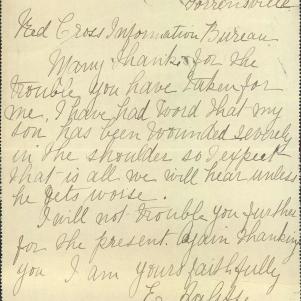 Torrensville
Red Cross Information Bureau
Many thanks for the
trouble you have taken for
me, I have had word that my
son has been wounded severely
in the shoulder so I expect
that is all we will hear unless
he gets worse.
I will not trouble you further
for the present. Again thanking
you I am yours faithfully
E.